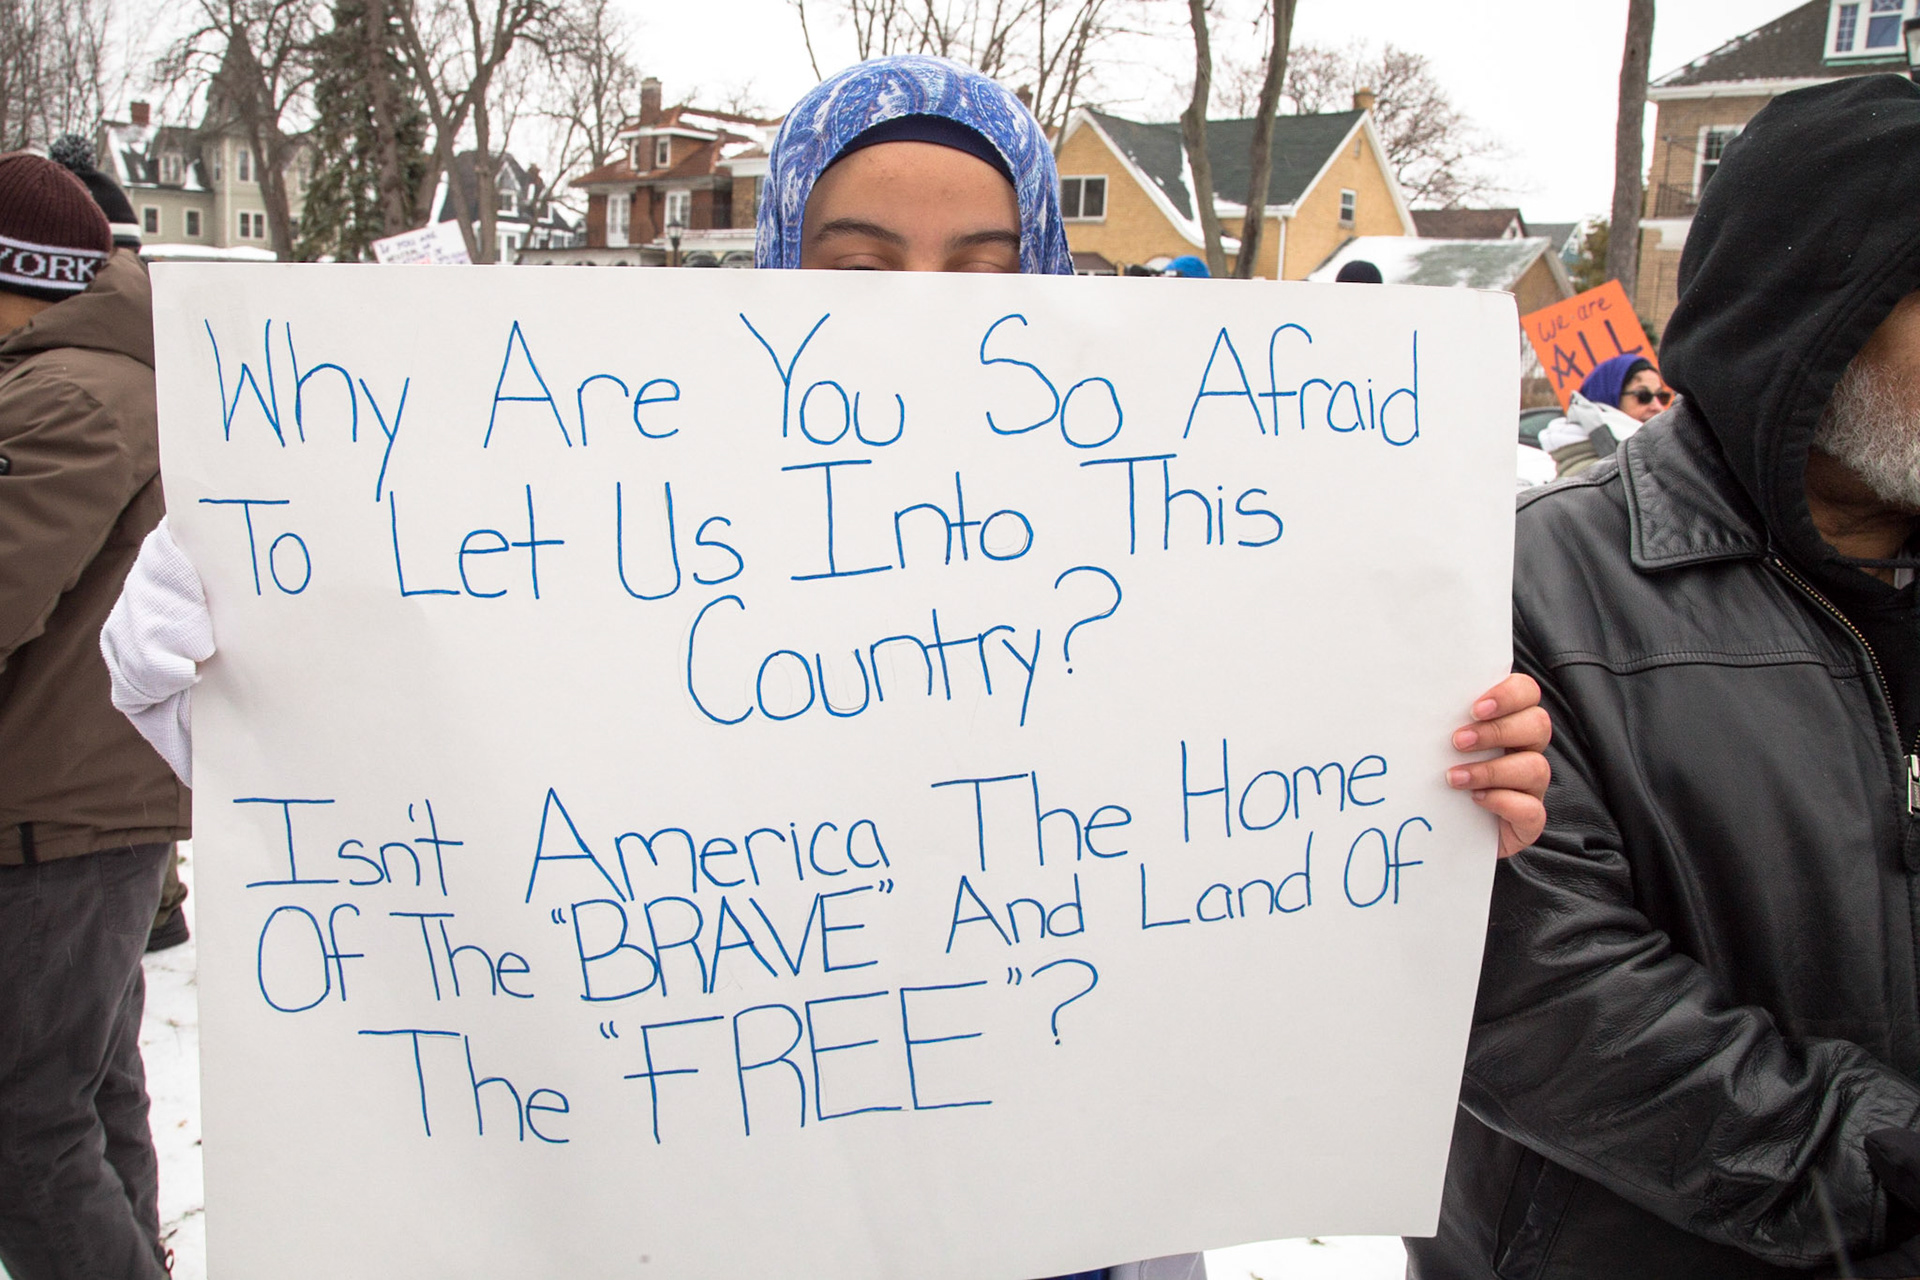 Why Are You So Afraid
To Let Us Into This
Country?
Isn't America The Home
Of The "BRAVE" And Land Of
The "FREE"?
YORK
IF YOU ARE
We are
ALL